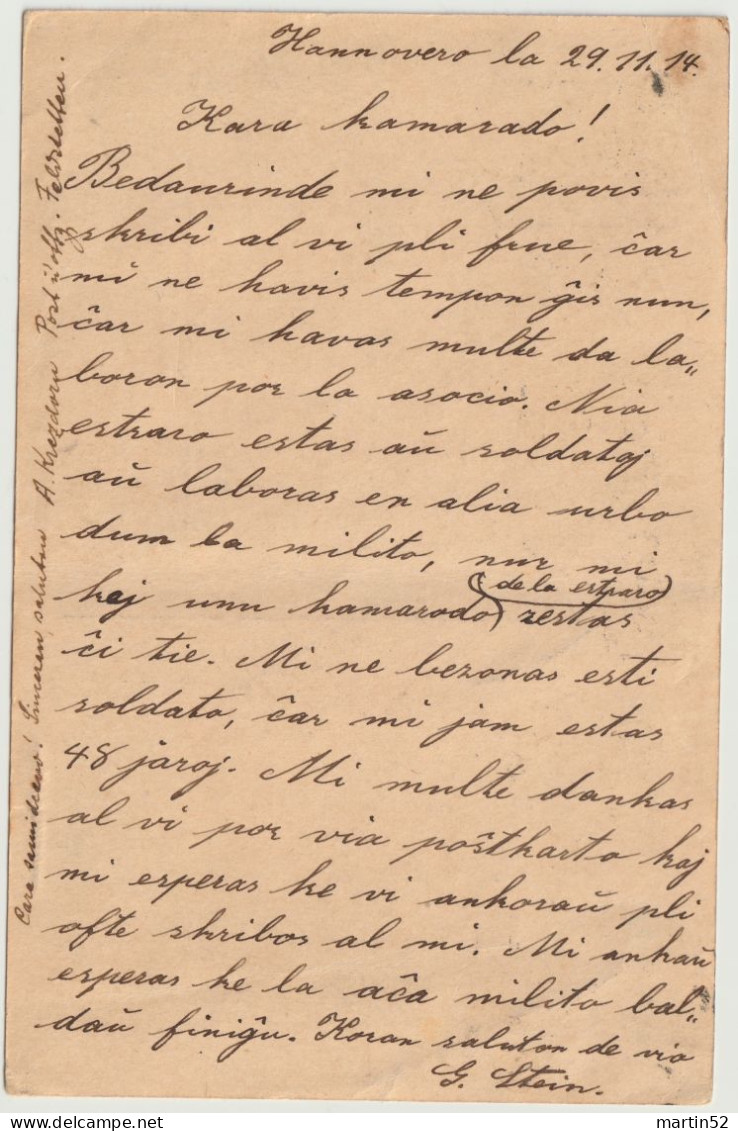 Hannovero la 29.11.14.
Kara kamarado!
Bedaurinde mi ne povis
skribi al vi pli frue, ĉar
mi ne havis tempon ĝis nun,
ĉar mi havas multe da la„
boron por la asocio. Nia
estraro estas aŭ soldatoj
aŭ laboras en alia urbo
dum la milito, nur mi
kaj unu kamarado (de la estraro) restas
ĉi tie. Mi ne bezonas esti
soldato, ĉar mi jam estas
48 jaroj. Mi multe dankas
al vi por via poŝtkarto kaj
mi esperas ke vi ankoraŭ pli
ofte skribos al mi. Mi ankaŭ
esperas ke la aĉa milito bal„
daŭ finiĝu. Koran saluton de via
G. Stein.
Cara samideano! Sinceran saluton A. Krezdorn Post Feldstetten.
martin52